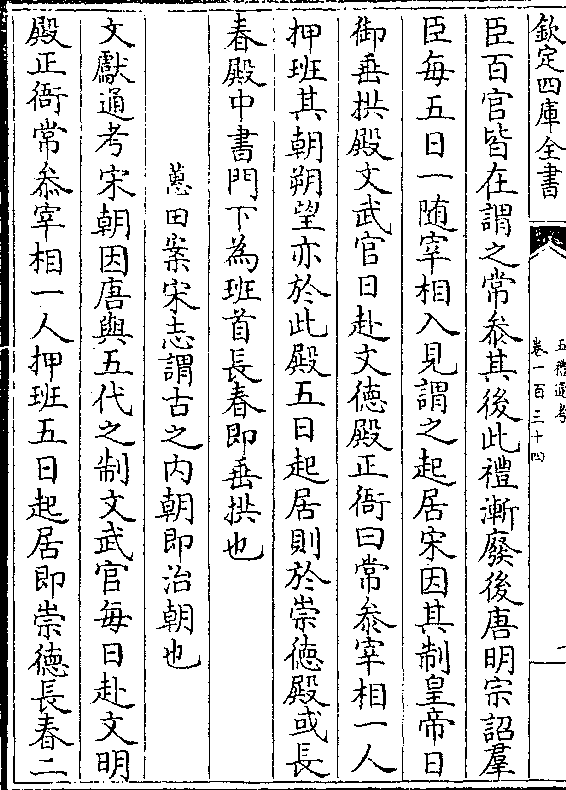 欽定四庫全書
五禮通考
卷一百三十四
臣百官皆在謂之常叅其後此禮漸廢後唐明宗詔羣
臣每五日一随宰相入見謂之起居宋因其制皇帝日
御垂拱殿文武官日赴文德殿正衙曰常叅宰相一人
押班其朝朔望亦於此殿五日起居則於崇德殿或長
春殿中書門下為班首長春即垂拱也
蕙田案宋志謂古之内朝即治朝也
文獻通考宋朝因唐與五代之制文武官每日赴文明
殿正衙常叅宰相一人押班五日起居即崇德長春二